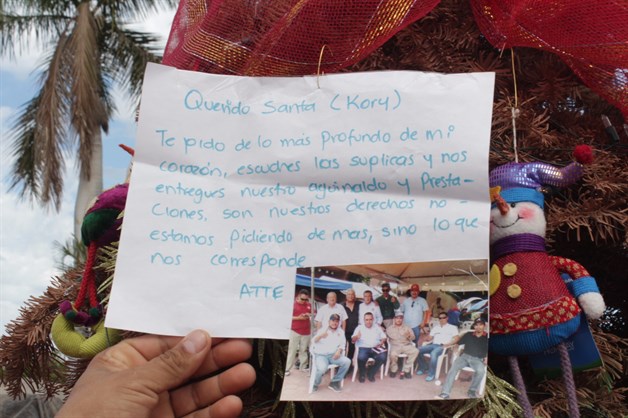 Querido Santa (Kory)
Te pido de lo más profundo de mi
corazón, escuches las suplicas y nos
entregues nuestro aguinaldo y Presta-
ciones, son nuestros derechos no -
estamos pidiendo de mas, sino lo que
nos corresponde
ATTE